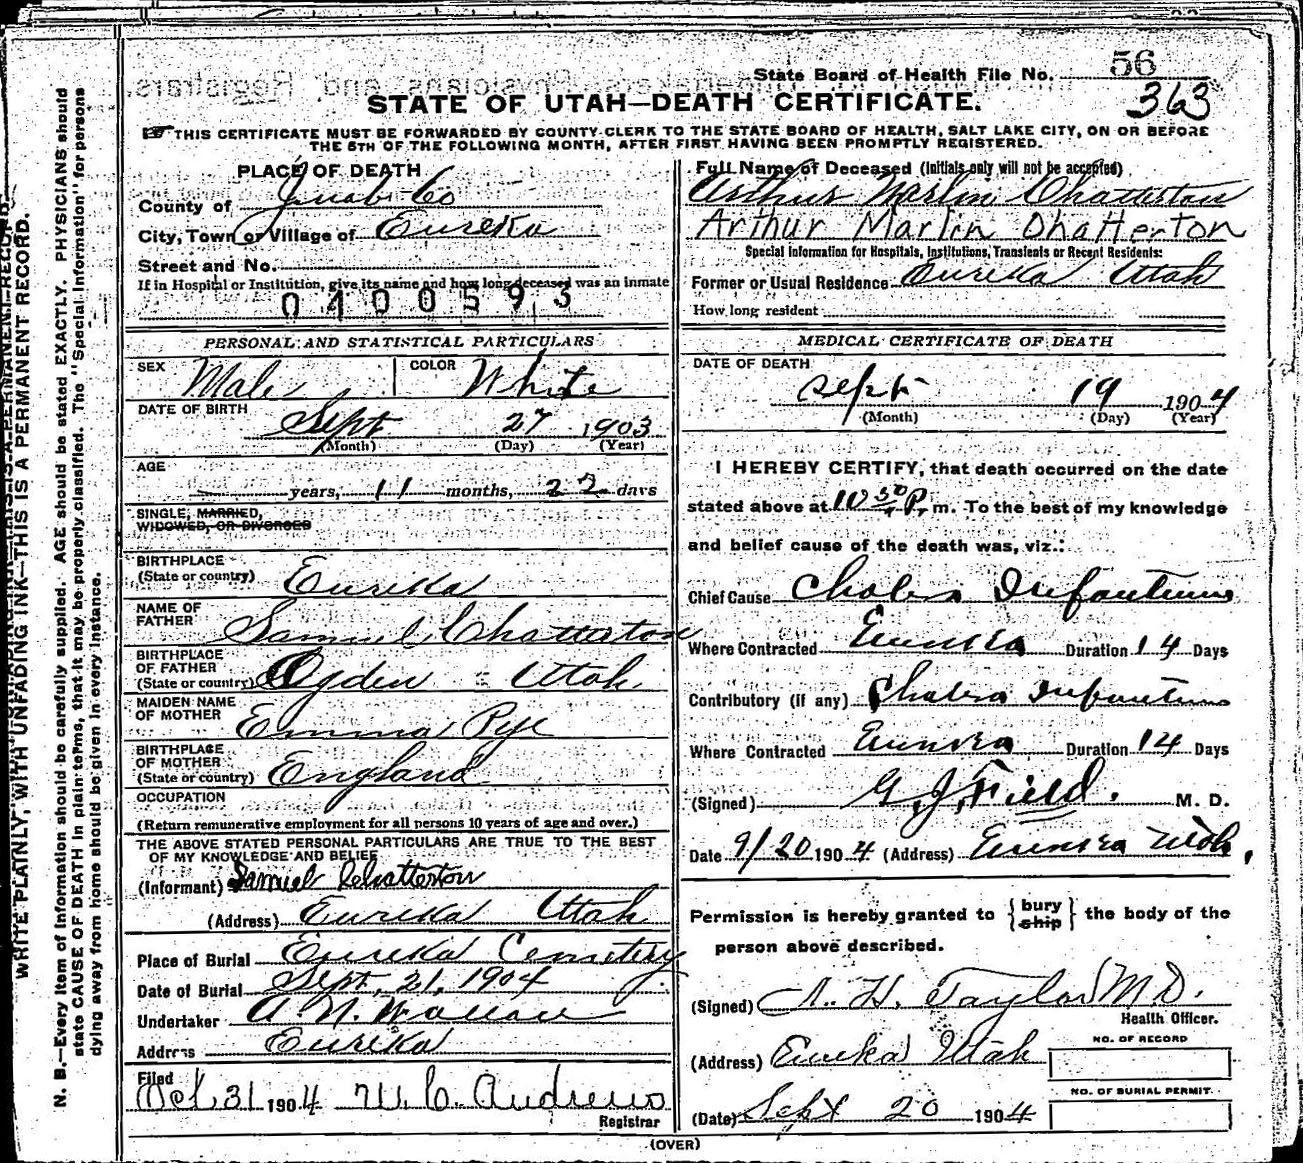 State Board of Health File No. 56
363
STATE OF UTAH—DEATH CERTIFICATE.
THIS CERTIFICATE MUST BE FORWARDED BY COUNTY CLERK TO THE STATE BOARD OF HEALTH, SALT LAKE CITY, ON OR BEFORE
THE 5TH OF THE FOLLOWING MONTH, AFTER FIRST HAVING BEEN PROMPTLY REGISTERED.
PLACE OF DEATH
County of Juab Co
City, Town or Village of Eureka
Street and No.
If in Hospital or Institution, give its name and how long deceased was an inmate
0400593
Full Name of Deceased (Initials only will not be accepted)
Arthur Marlin Chatterton
Arthur Marlin Chatterton
Special Information for Hospitals, Institutions, Transients or Recent Residents:
Former or Usual Residence Eureka Utah
How long resident
PERSONAL AND STATISTICAL PARTICULARS
SEX Male COLOR White
DATE OF BIRTH
Sept 27 1903
(Month) (Day) (Year)
AGE
years, 11 months, 22 days
SINGLE, MARRIED,
WIDOWED, OR DIVORCED
BIRTHPLACE
(State or country) Eurika
NAME OF
FATHER Samuel Chattaton
BIRTHPLACE
OF FATHER
(State or country) Ogden Utah
MAIDEN NAME
OF MOTHER Emma Pye
BIRTHPLACE
OF MOTHER
(State or country) England
OCCUPATION
(Return remunerative employment for all persons 10 years of age and over.)
THE ABOVE STATED PERSONAL PARTICULARS ARE TRUE TO THE BEST
OF MY KNOWLEDGE AND BELIEF
(Informant) Samuel Chatterton
(Address) Eureka Utah
Place of Burial Eureka Cemetery
Date of Burial Sept. 21, 1904
Undertaker A N. Wallace
Address Eurika
Filed
Oct. 31 1904 W. C. Andrews
Registrar
MEDICAL CERTIFICATE OF DEATH
DATE OF DEATH
Sept 19 1904
(Month) (Day) (Year)
I HEREBY CERTIFY, that death occurred on the date
stated above at 10 50 P. m. To the best of my knowledge
and belief cause of the death was, viz.:
Chief Cause Cholera Infantum
Where Contracted Eureka Duration 14 Days
Contributory (if any) Cholera Infantum
Where Contracted Eureka Duration 14 Days
(Signed) G. J. Field. M. D.
Date 9/20 1904 (Address) Eureka Utah,
Permission is hereby granted to { bury ship } the body of the
person above described.
(Signed) H. Taylor M.D.
Health Officer.
(Address) Eureka Utah
NO. OF RECORD
NO. OF BURIAL PERMIT.
(Date) Sept 20 1904
(OVER)
WRITE PLAINLY, WITH UNFADING INK—THIS IS A PERMANENT RECORD.
N. B.—Every item of information should be carefully supplied. AGE should be stated EXACTLY. PHYSICIANS should
state CAUSE OF DEATH in plain terms, that it may be properly classified. The "Special Information" for persons
dying away from home should be given in every instance.